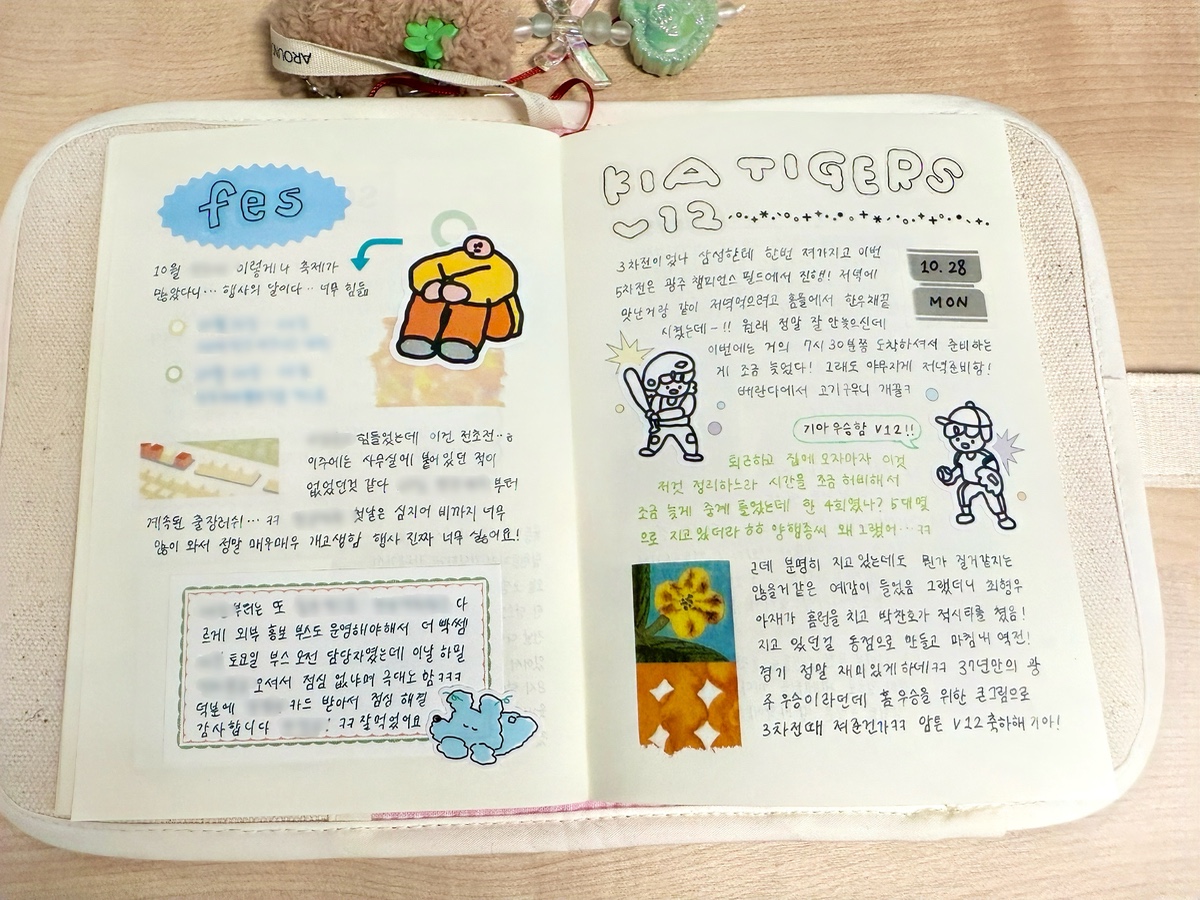 AROUN
fes
10월 이렇게나 축제가
많았다니… 행사의 달이다‥ 너무 힘듦
힘들었는데 이건 전초전‥
이주에는 사무실에 붙어있던 적이
없었던것 같다 부터
계속된 출장러쉬… ㅋㅋ 첫날은 심지어 비까지 너무
많이 와서 정말 매우매우 개고생함 행사 진짜 너무 싫어요!
부터는 또 다
르게 외부 홍보 부스도 운영해야해서 더 빡쎔
토요일 부스 오전 담당자였는데 이날 하필
오셔서 점심 없냐며 극대노함ㅋㅋㅋ
덕분에 카드 받아서 점심 해결
감사합니다 ! ㅋㅋ 잘먹었어요
KIA TIGERS
V12
10.28
MON
3차전이었나 삼성한테 한번 져가지고 이번
5차전은 광주 챔피언스 필드에서 진행! 저녁에
맛난거랑 같이 저녁먹으려고 홈플에서 한우채끝
시켰는데-!! 원래 정말 잘 안늦으신데
이번에는 거의 7시 30분쯤 도착하셔서 준비하는
게 조금 늦었다! 그래도 야무지게 저녁준비함!
베란다에서 고기구우니 개꿀ㅋ
기아우승함 V12!!
퇴근하고 집에 오자마자 이것
저것 정리하느라 시간을 조금 허비해서
조금 늦게 중계 틀었는데 한 4회였나? 5대영
으로 지고있더라 ㅎㅎ 양현종씨 왜 그랬어…ㅋㅋ
근데 분명히 지고있는데도 뭔가 질거같지는
않을거같은 예감이 들었음 그랬더니 최형우
아재가 홈런을 치고 박찬호가 적시타를 쳤음!
지고 있던걸 동점으로 만들고 마침내 역전!
경기 정말 재미있게하네ㅋㅋ 37년만의 광
주 우승이라던데 홈 우승을 위한 큰그림으로
3차전때 져준건가ㅋㅋ 암튼 V12 축하해 기아!